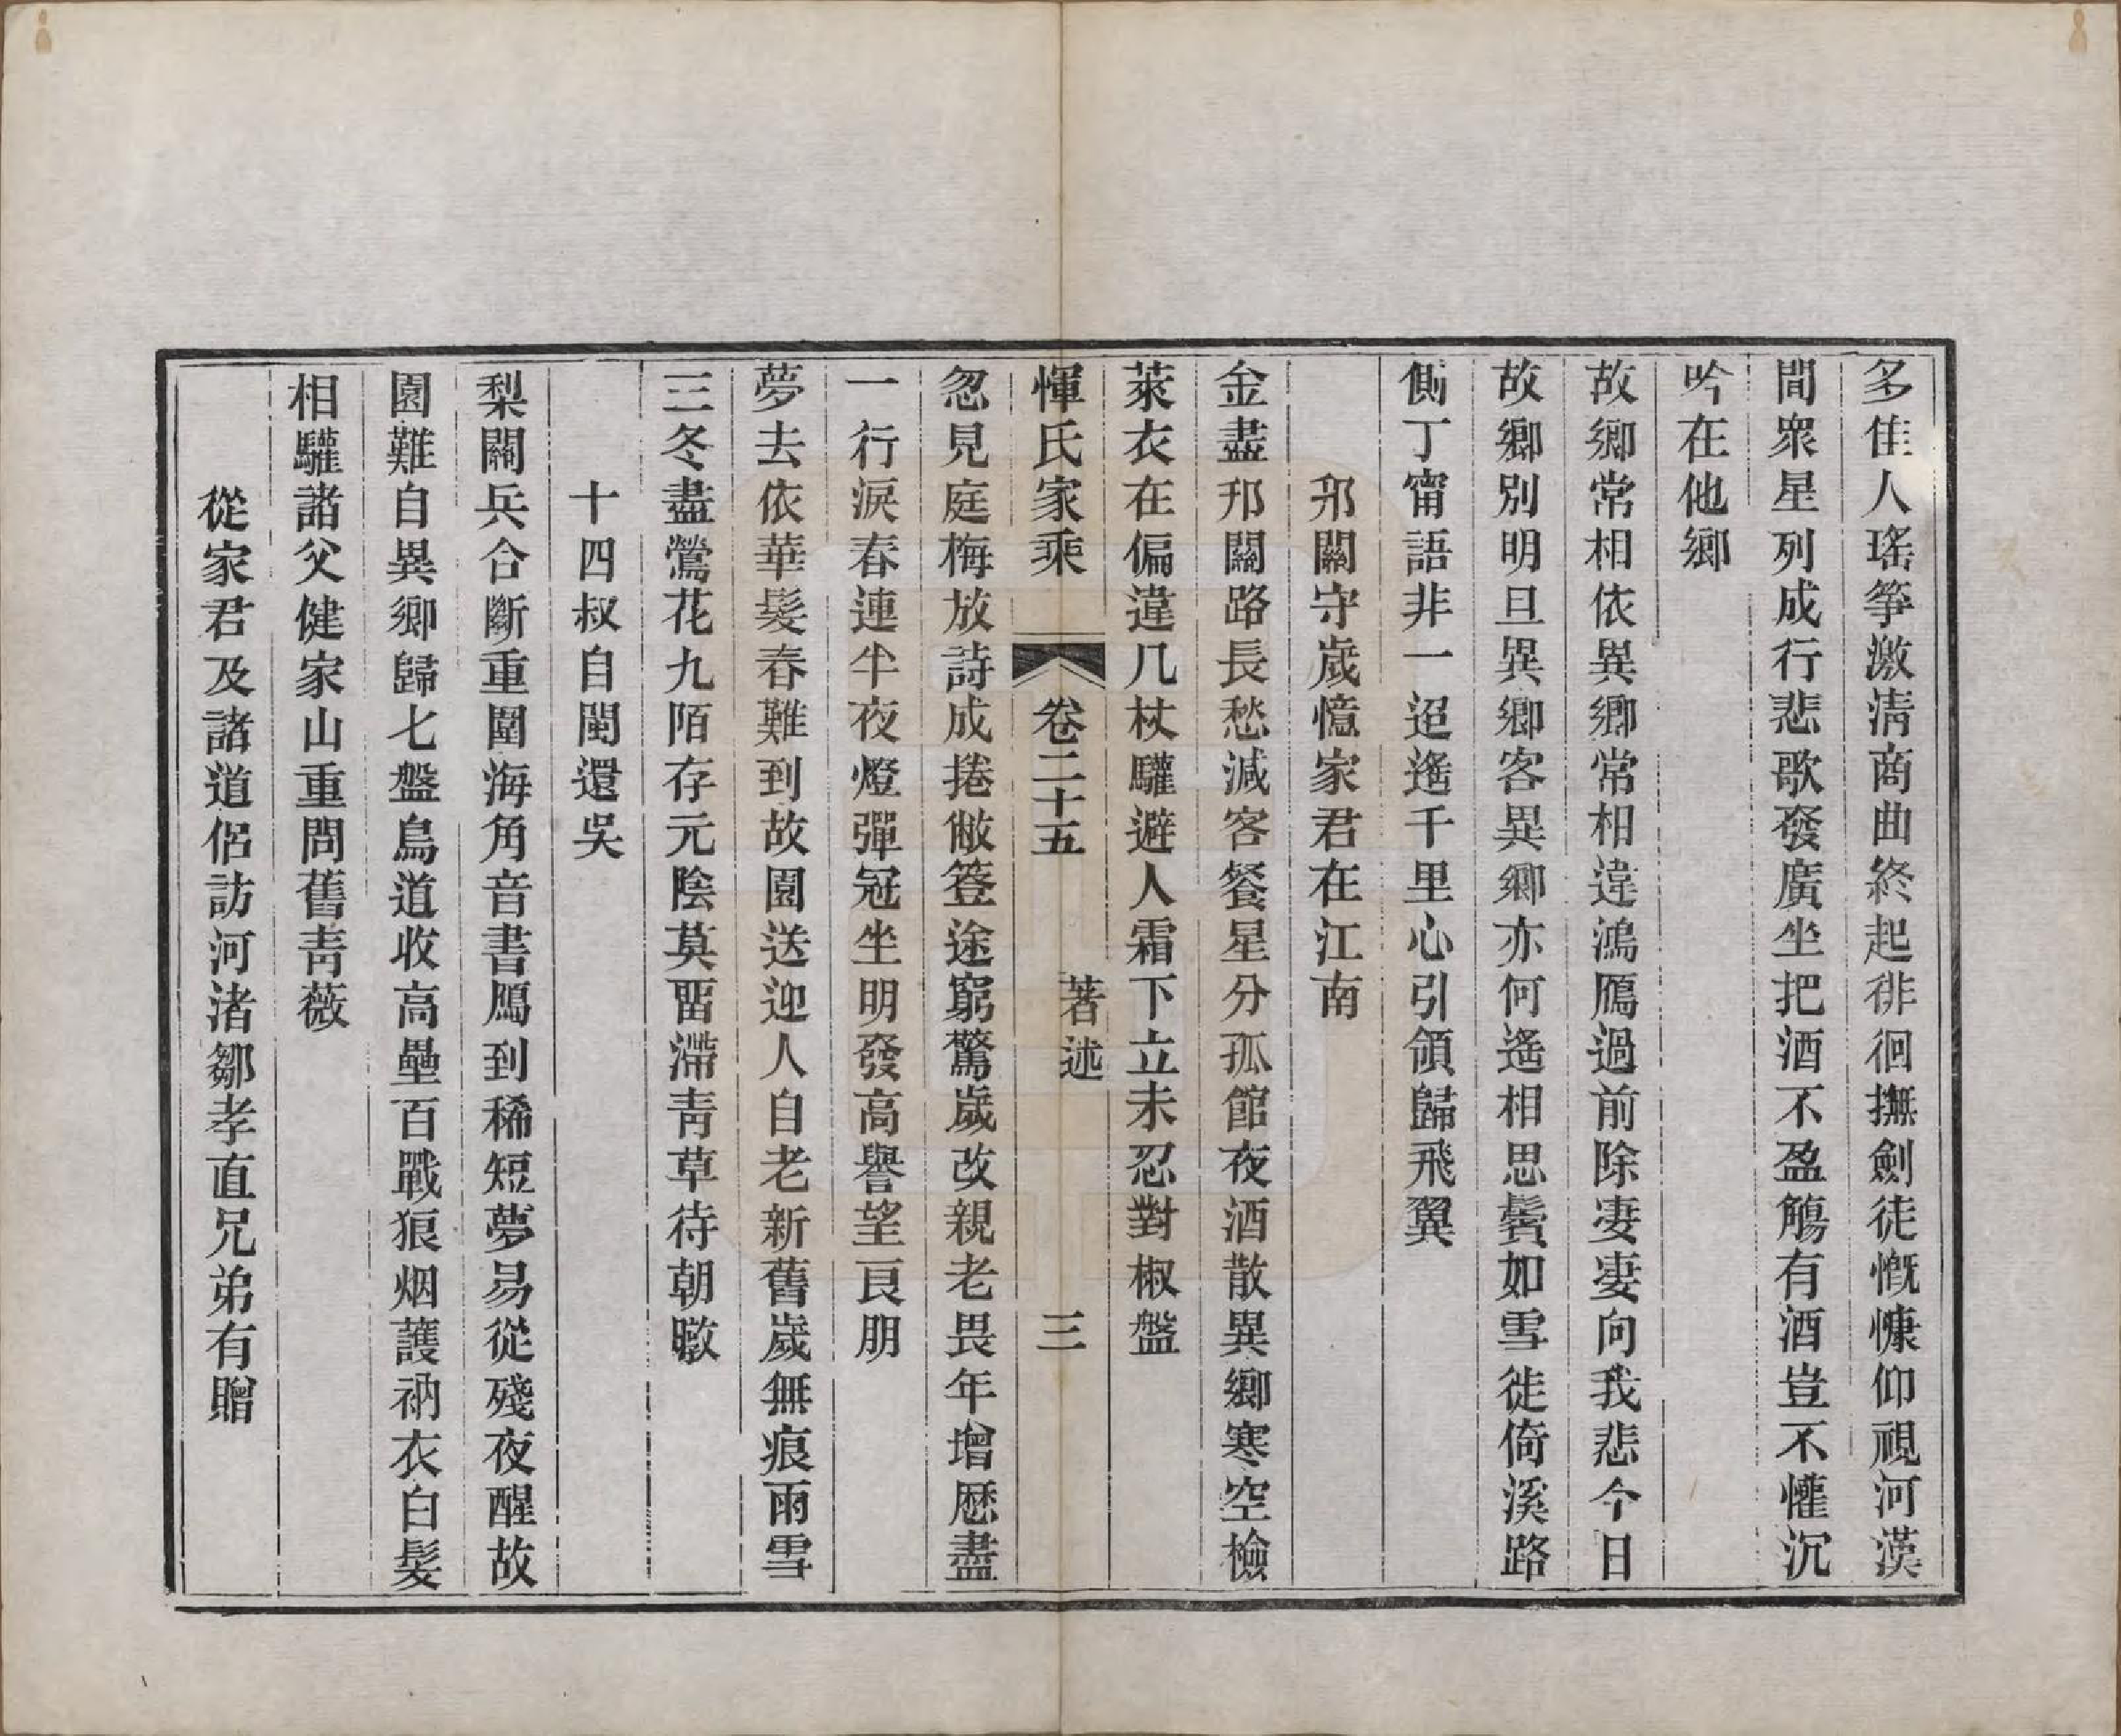 多佳人瑤箏激清商曲終起徘徊撫劍徒慨慷仰視河漢
間眾星列成行悲歌發廣坐把酒不盈觴有酒豈不懽沉
吟在他鄉
故鄉常相依異鄉常相違鴻鴈過前除凄凄向我悲今日
故鄉別明旦異鄉客異鄉亦何遙相思鬢如雪徙倚溪路
側丁甯語非一迢遙千里心引領歸飛翼
邗關守歲憶家君在江南
金盡邗關路長愁減客餐星分孤館夜酒散異鄉寒空檢
萊衣在偏違几杖驩避人霜下立未忍對椒盤
惲氏家乘 卷二十五 著述 三
忽見庭梅放詩成捲敝簦途窮驚歲改親老畏年增歷盡
一行淚春連半夜燈彈冠坐明發高譽望良朋
夢去依華髮春難到故園送迎人自老新舊歲無痕雨雪
三冬盡鶯花九陌存元陰莫畱滯靑草待朝暾
十四叔自閩還吳
梨關兵合斷重圍海角音書鴈到稀短夢易從殘夜醒故
園難自異鄉歸七盤鳥道收高壘百戰狼烟護衲衣白髮
相驩諸父健家山重問舊靑薇
從家君及諸道侶訪河渚鄒孝直兄弟有贈